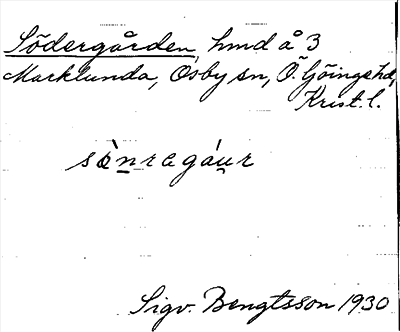 Södergården, hmd å 3
Marklunda, Osby sn, Ö. Göinge hd,
Krist. l.
sö̀nragáur
Sigv. Bengtsson 1930